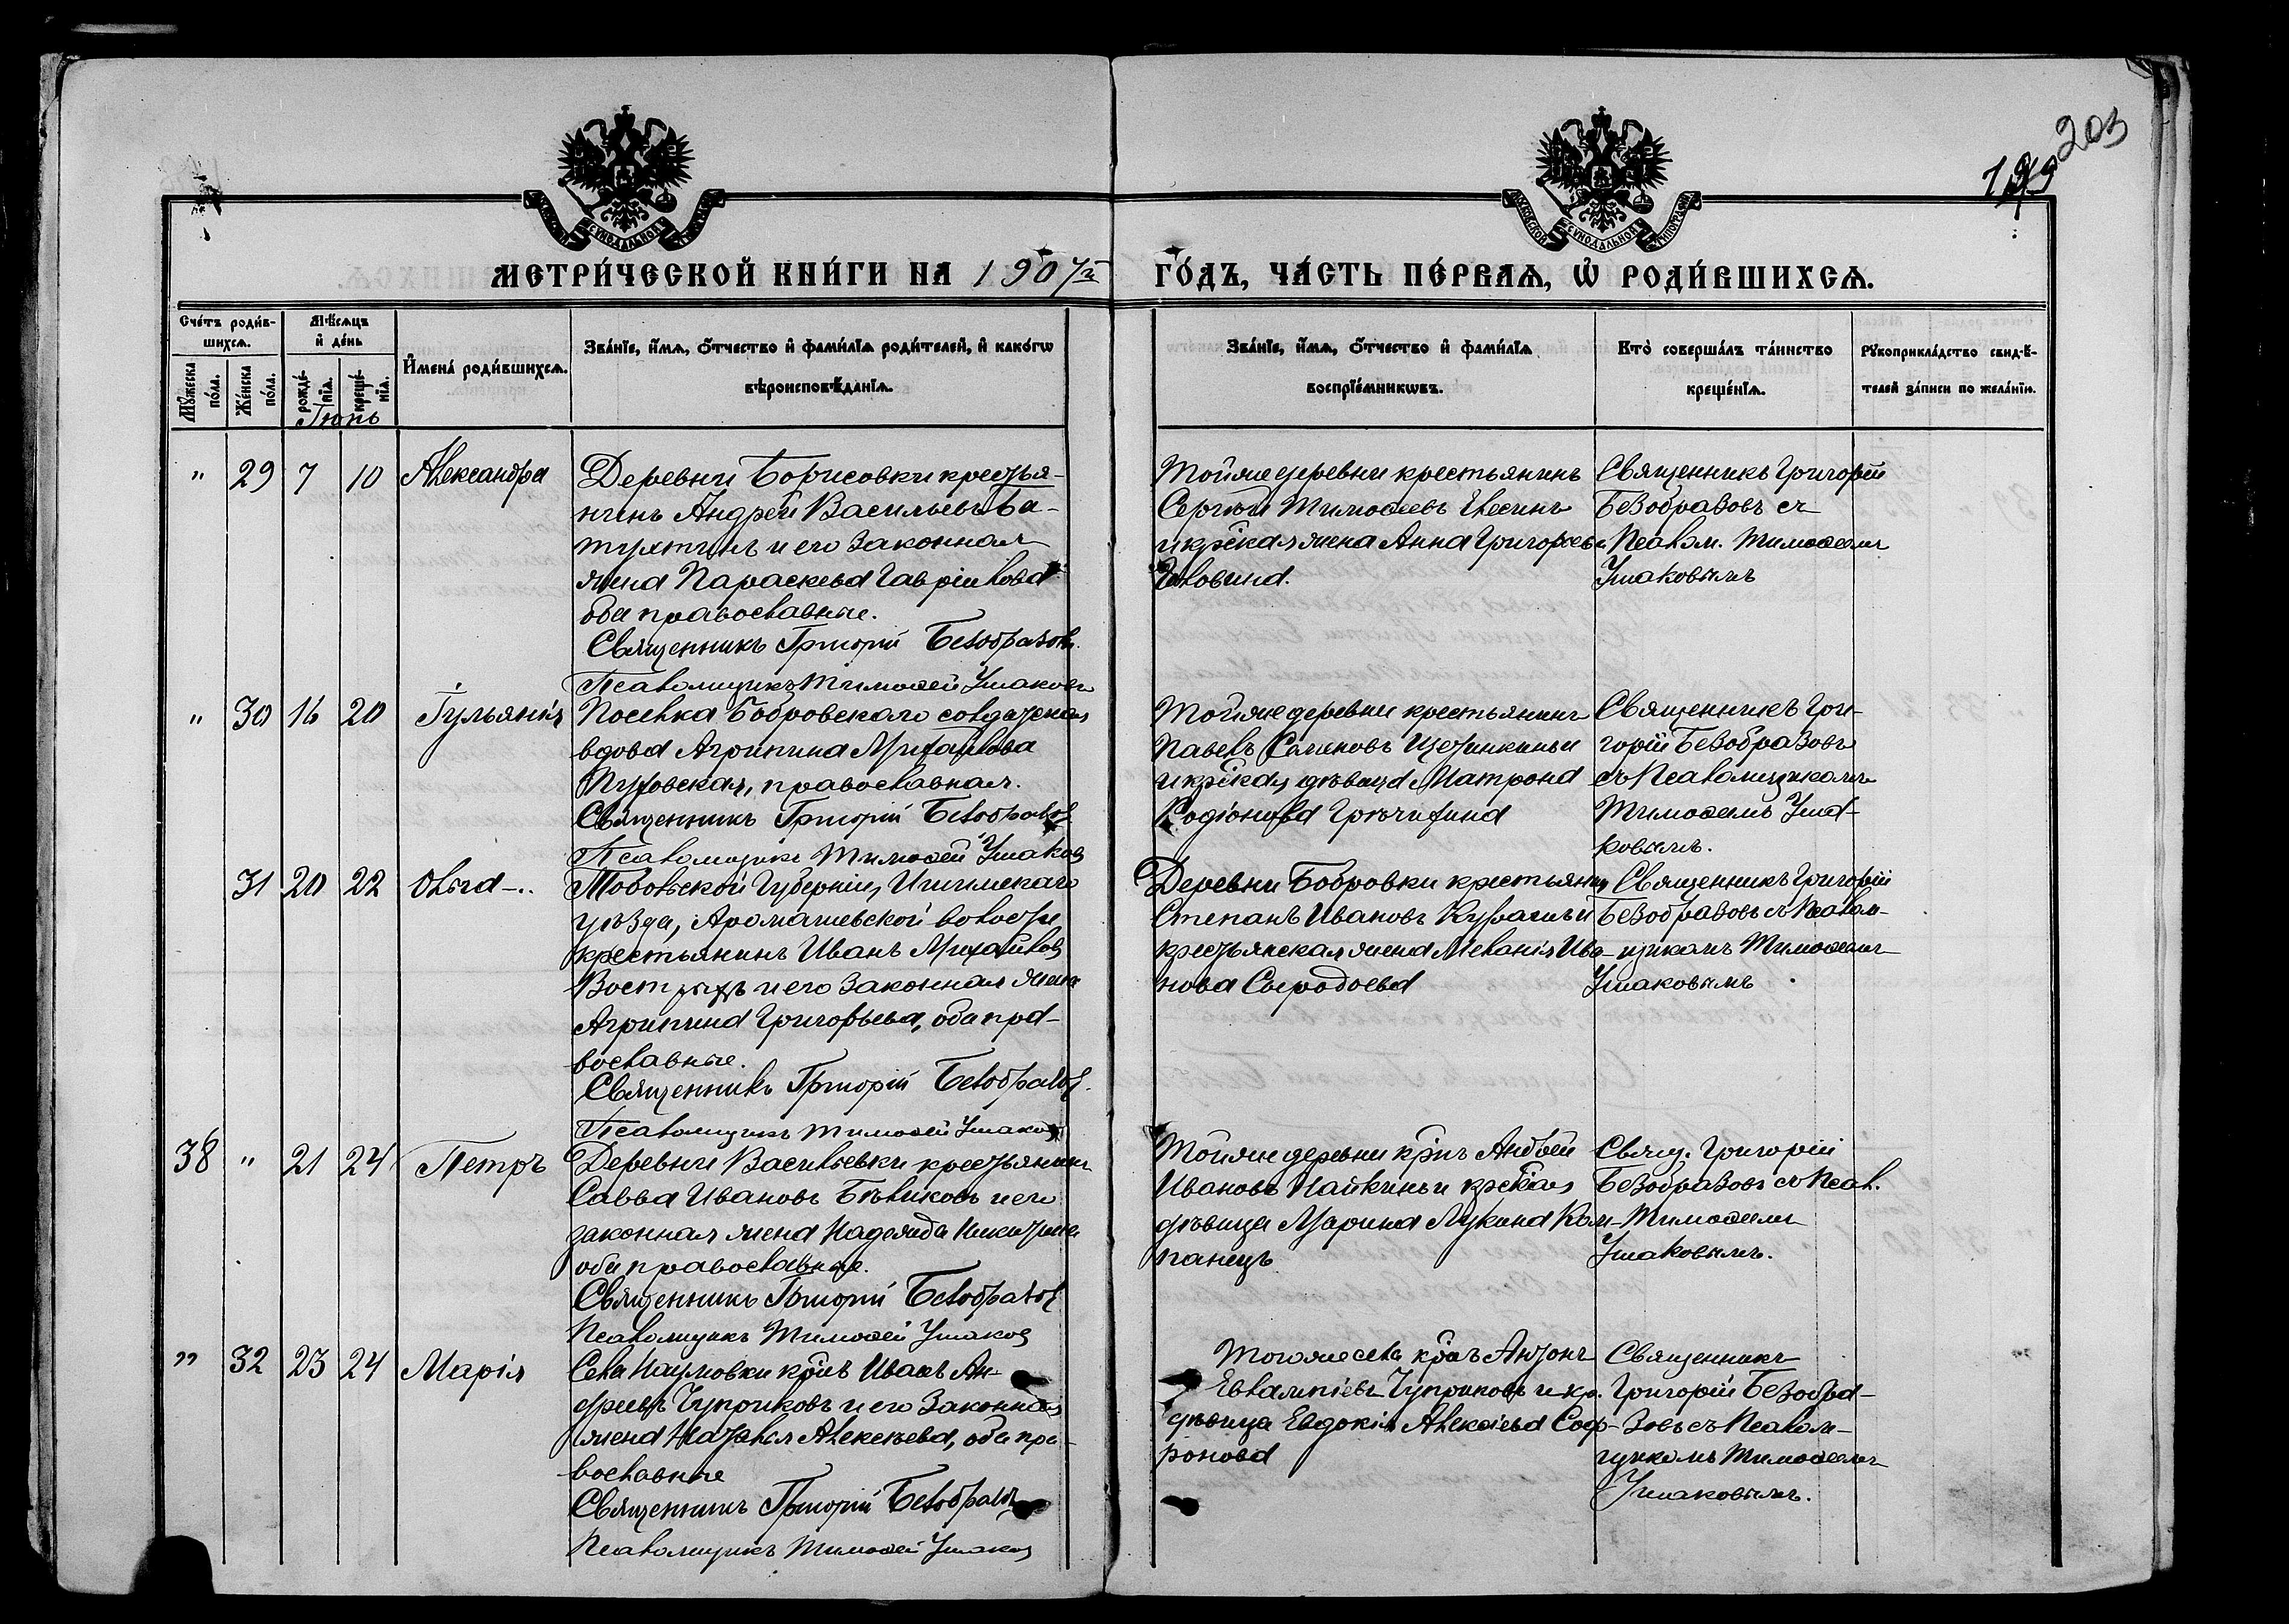 203
МЕТРИ́ЧЕСКОЙ КНИ́ГИ НА 1907й ГО́ДЪ, ЧА́СТЬ ПЕ́РВАѦ, Ѡ҆ РОДИ́ВШИХСѦ.
Сче́тъ роди́в-
шихсѧ.
Мꙋ́жеска по́ла.
Же́нска по́ла.
Мѣ́сѧцъ
и҆ де́нь
рожде́-
нїѧ.
креще́-
нїѧ.
И҆мена̀ роди́вшихсѧ.
Зва́нїе, и҆́мѧ, ѻ҆́тчество и҆ фами́лїѧ роди́телей, и҆ како́гѡ
вѣроисповѣ́данїѧ.
Зва́нїе, и҆́мѧ, ѻ҆́тчество и҆ фами́лїѧ
воспрїе́мникѡвъ.
Кто̀ соверша́лъ та́инство
креще́нїѧ.
Рꙋкоприкла́дство свид-ѣ-
телей за́писи по жела́нїю.
Іюнь
" 29 7 10 Александра
Деревни Борисовки крестья-
нинъ Андрей Васильевъ
и его законная
жена Параскева Гавріилова
оба православные.
Священникъ Григорій Безобразовъ.
Псаломщикъ Тимоѳей Ушаковъ
Тойже деревни крестьянинъ
Сергій Тимоѳеевъ
и крѣская жена Анна Григорьева
Священникъ Григорій
Безобразовъ съ
Псалом. Тимоѳеемъ
Ушаковымъ
" 30 16 20 Іульянія
Поселка Бобровскаго солдатская
вдова Агрипина Михайлова
православная.
Священникъ Григорій Безобразовъ
Псаломщикъ Тимоѳей Ушаковъ
Тойже деревни крестьянинъ
Павелъ Семеновъ Щетинкинъ и
и крѣская дѣвица Матрона
Родіонова
Священникъ Гри-
горій Безобразовъ
съ Псаломщикомъ
Тимоѳеемъ Уша-
ковымъ.
31 20 22 Ольга
Тобольской Губерніи, Ишимскаго
уѣзда, Аромашевской волости
крестьянинъ Иванъ Михайловъ
и его законная жена
Агрипина Григорьева, оба пра-
вославные.
Священникъ Григорій Безобразовъ.
Псаломщикъ Тимоѳей Ушаковъ
Деревни Бобровки крестьянинъ
Степанъ Ивановъ и
крестьянская жена Меланія Ива-
нова Сыродоева
Священникъ Григорій
Безобразовъ съ Псалом-
щикомъ Тимоѳеемъ
Ушаковымъ
38 " 21 24 Петръ
Деревни Васильевки крестьянинъ
Савва Ивановъ Бѣликовъ и его
законная жена Надежда Никитина
оба православные.
Священникъ Григорій Безобразовъ
Псаломщикъ Тимоѳей Ушаковъ
Тойже деревни крнъ Андрей
Ивановъ и крская
дѣвица Марина Лукина Ком-
панецъ
Свящ. Григорій
Безобразовъ съ Псал.
Тимоѳеемъ
Ушаковымъ.
" 32 23 24 Марія
Села Наумовки крнъ Иванъ Ан-
дреевъ Чуприковъ и его законная
жена Наталья Алексѣева, оба пра-
вославные
Священникъ Григорій Безобразовъ
Псаломщикъ Тимоѳей Ушаковъ
Тогоже села крнъ Антонъ
Евлампіевъ Чуприковъ и кр.
дѣвица Евдокія Алексѣева Соф-
ронова
Священникъ
Григорій Безобра-
зовъ съ Псалом-
щикомъ Тимоѳеемъ
Ушаковымъ.